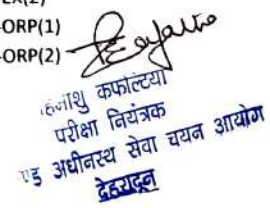 EX(2)
-ORP(1)
-ORP(2)
हिमांशु कफल्टिया
परीक्षा नियंत्रक
ण्ड अधीनस्थ सेवा चयन आयोग
देहरादून